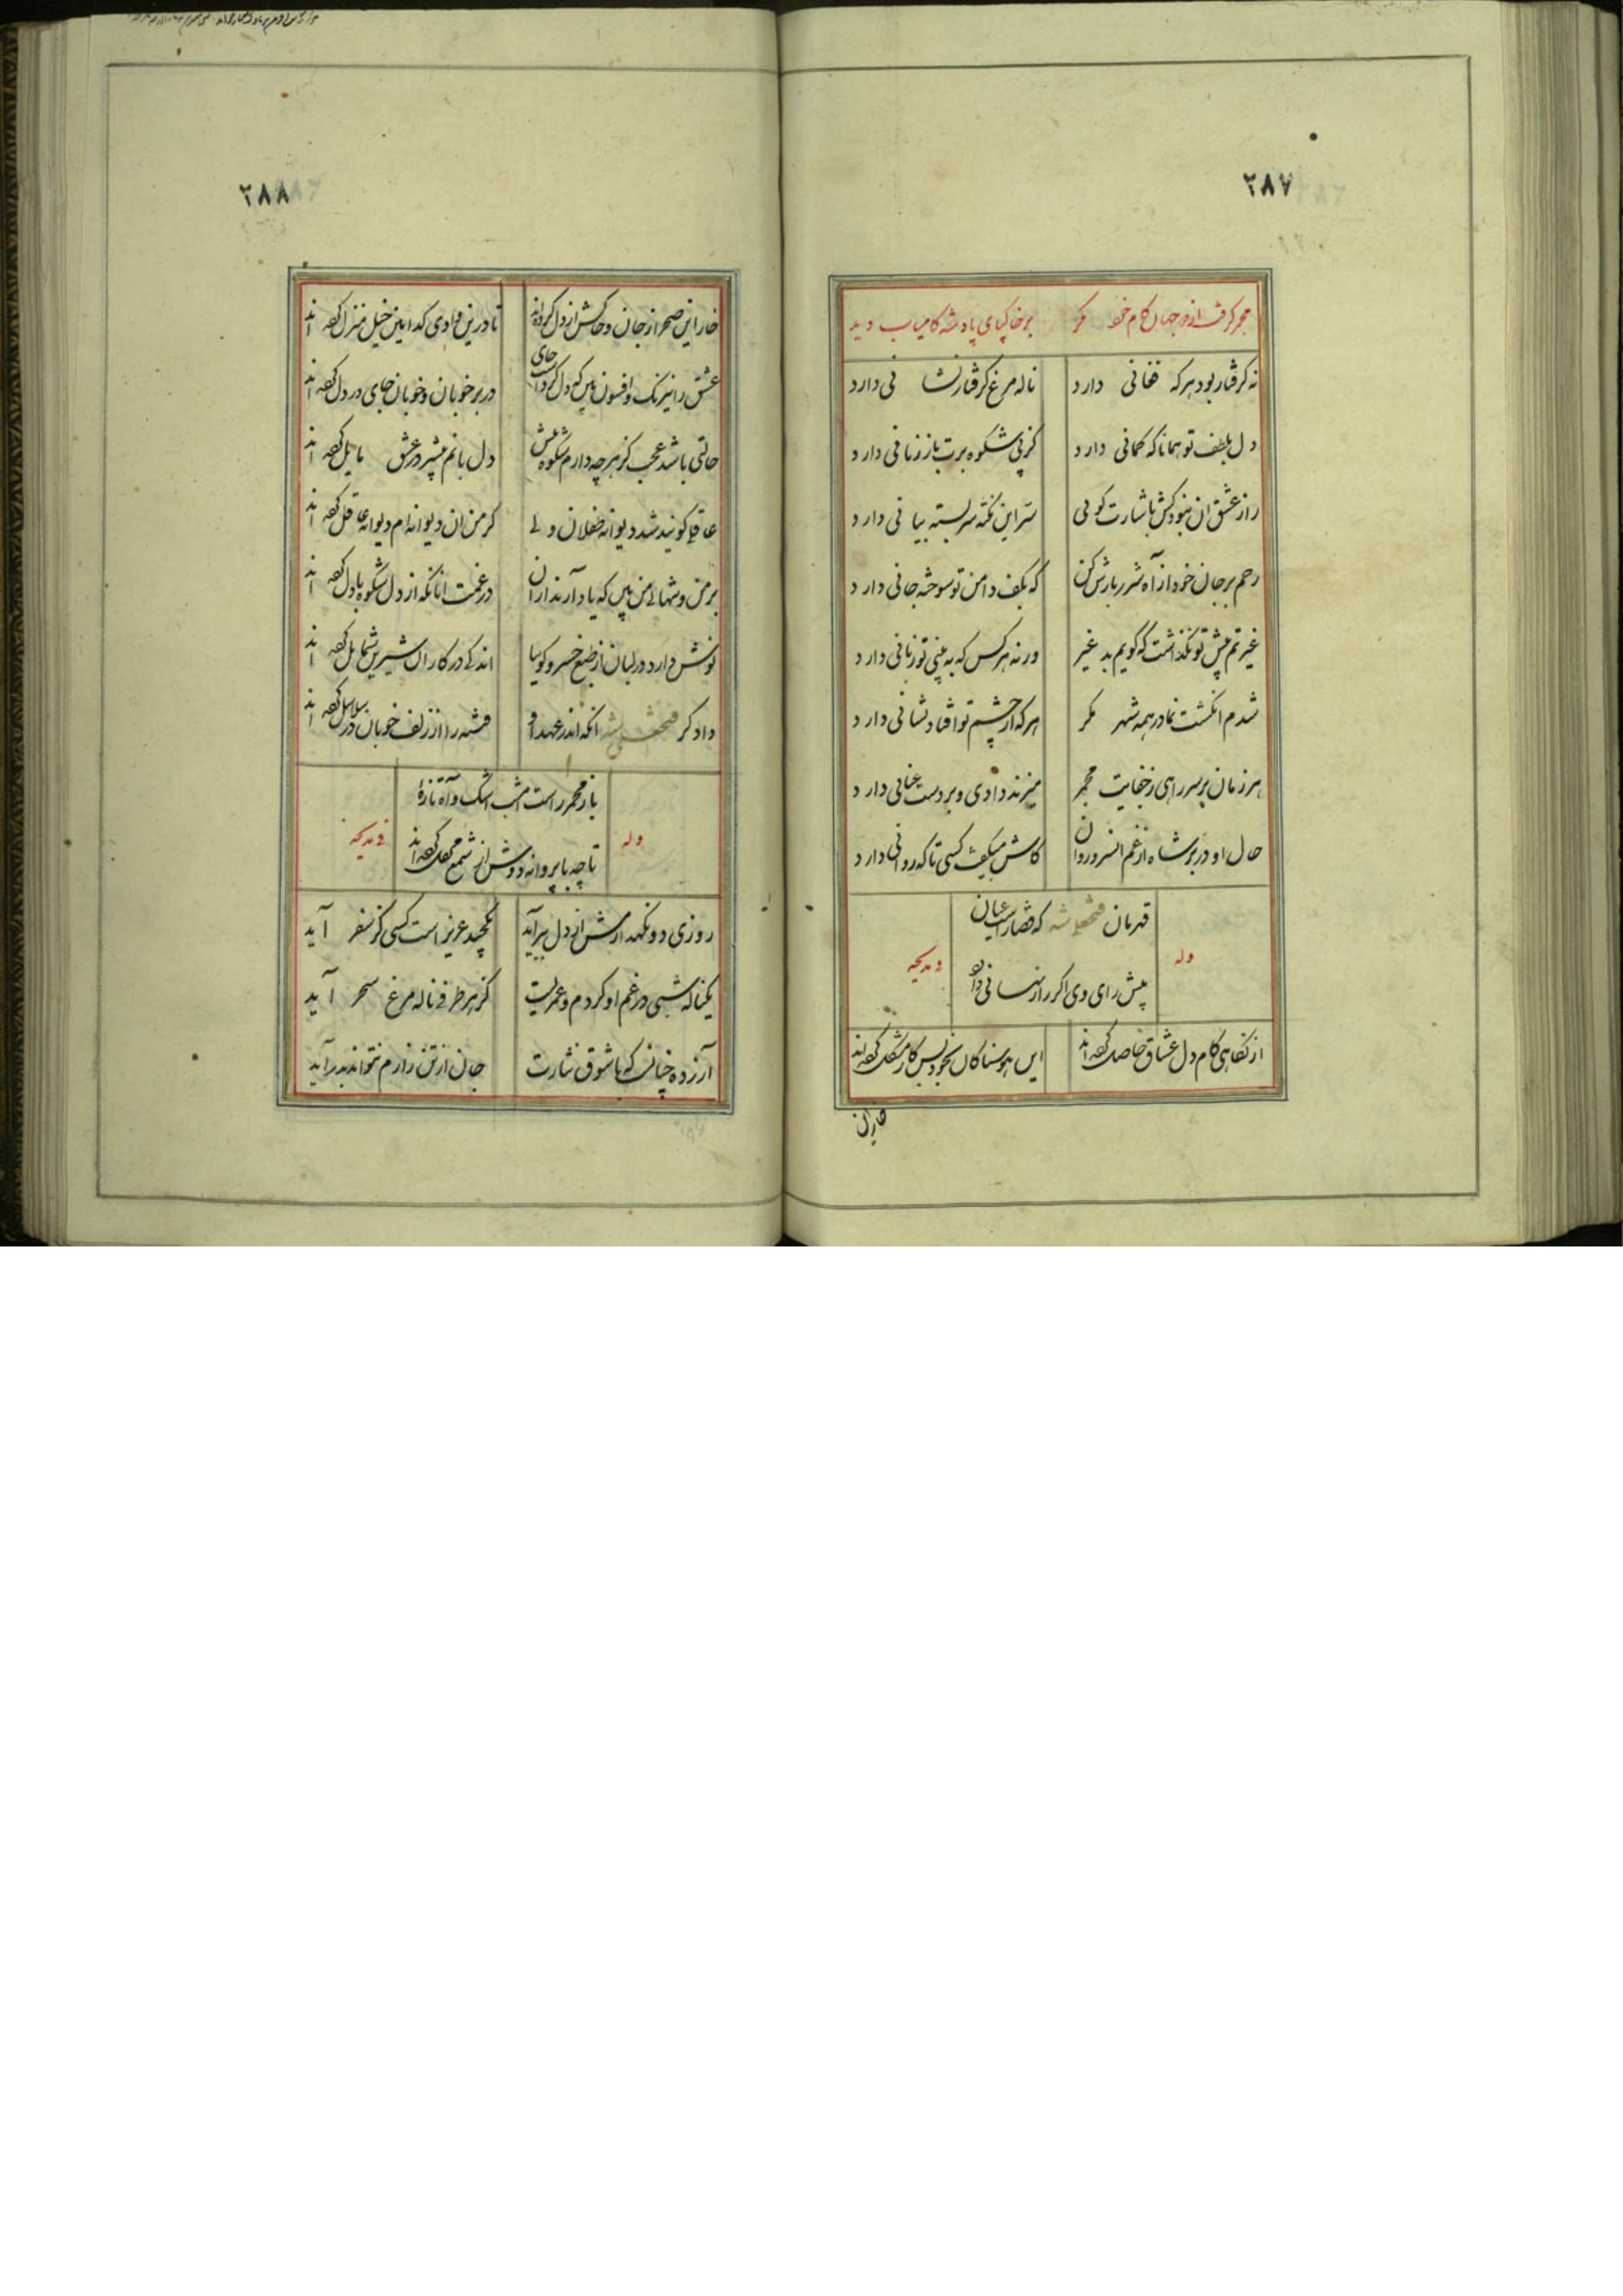 ۲۸۷
مجمر گرفت از دو جهان کام خود مگر برخاکپای پادشه کامیاب دید
نه گرفتار بود هرکه فغانی دارد ناله مرغ گرفتار نشانی دارد
دل بلطف تو همانا که گمانی دارد کز پی شکوه برت باز زبانی دارد
راز عشق ان نبود کش باشارت گویی سر این نکته سربسته بیانی دارد
رحم بر جان خود از آه شرربارش کن که بکف دامن تو سوخته جانی دارد
غیرتم پیش تو نگذاشت که گویم بد غیر ورنه هر کس که به بینی تو زبانی دارد
شدم انگشت نما در همه شهر مگر هرکه از چشم تو افتاد نشانی دارد
هر زمان بر سر راهی ز جفایت مجمر میزند دادی و بر دست عنانی دارد
حال او در بر شاه از غم انسرو روان کاش میگفت کسی تا که روانی دارد
وله قهرمان فتحعلی شه که قضا راست عیان و مدیحه
پیش رای وی اگر راز نهانی دارد
از نگاهی کام دل عشاق حاصل کرده اند این هوسناکان بخود بس کار مشکل کرده اند
خار این
۲۸۸
خار این صحرا ز جان و خاکش از دل کرده اند تا درین وادی کدامین خیل منزل کرده اند
عشق را نیرنگ و افسون بین که در دل کرده جای در بر خوبان و خوبان جای در دل کرده اند
حالتی باشد عجب کز هرچه دارم شکوه بیش دل بانم بیشتر در عشق مایل کرده اند
عاقلی گویند شد دیوانه طفلان ولی گر من ان دیوانه ام دیوانه عاقل کرده اند
بر من و شبهای من بین که یاد آرند از ان در غمت انانکه از دل شکوه با دل کرده اند
نوش دارد در لبان از طبع خسرو گوییا اندکی در کار ان شیرین شمایل کرده اند
دادگر فتحعلی شه انکه اندر عهد او فتنه را از زلف خوبان در سلاسل کرده اند
وله باز مجمر راست امشب اشک و آه تازهٔ و مدیحه
تا چه با پروانه دوش از شمع محفل کرده اند
روزی دو نگهدارمش از دل ببر آید بیچید عزیز است کسی کز سفر آید
یکناله شبی در غم او کردم و عمریست کز هر طرفی ناله مرغ سحر آید
آزرده چنانست که با شوق نثارت جان از تن زارم نتواند بدر آید